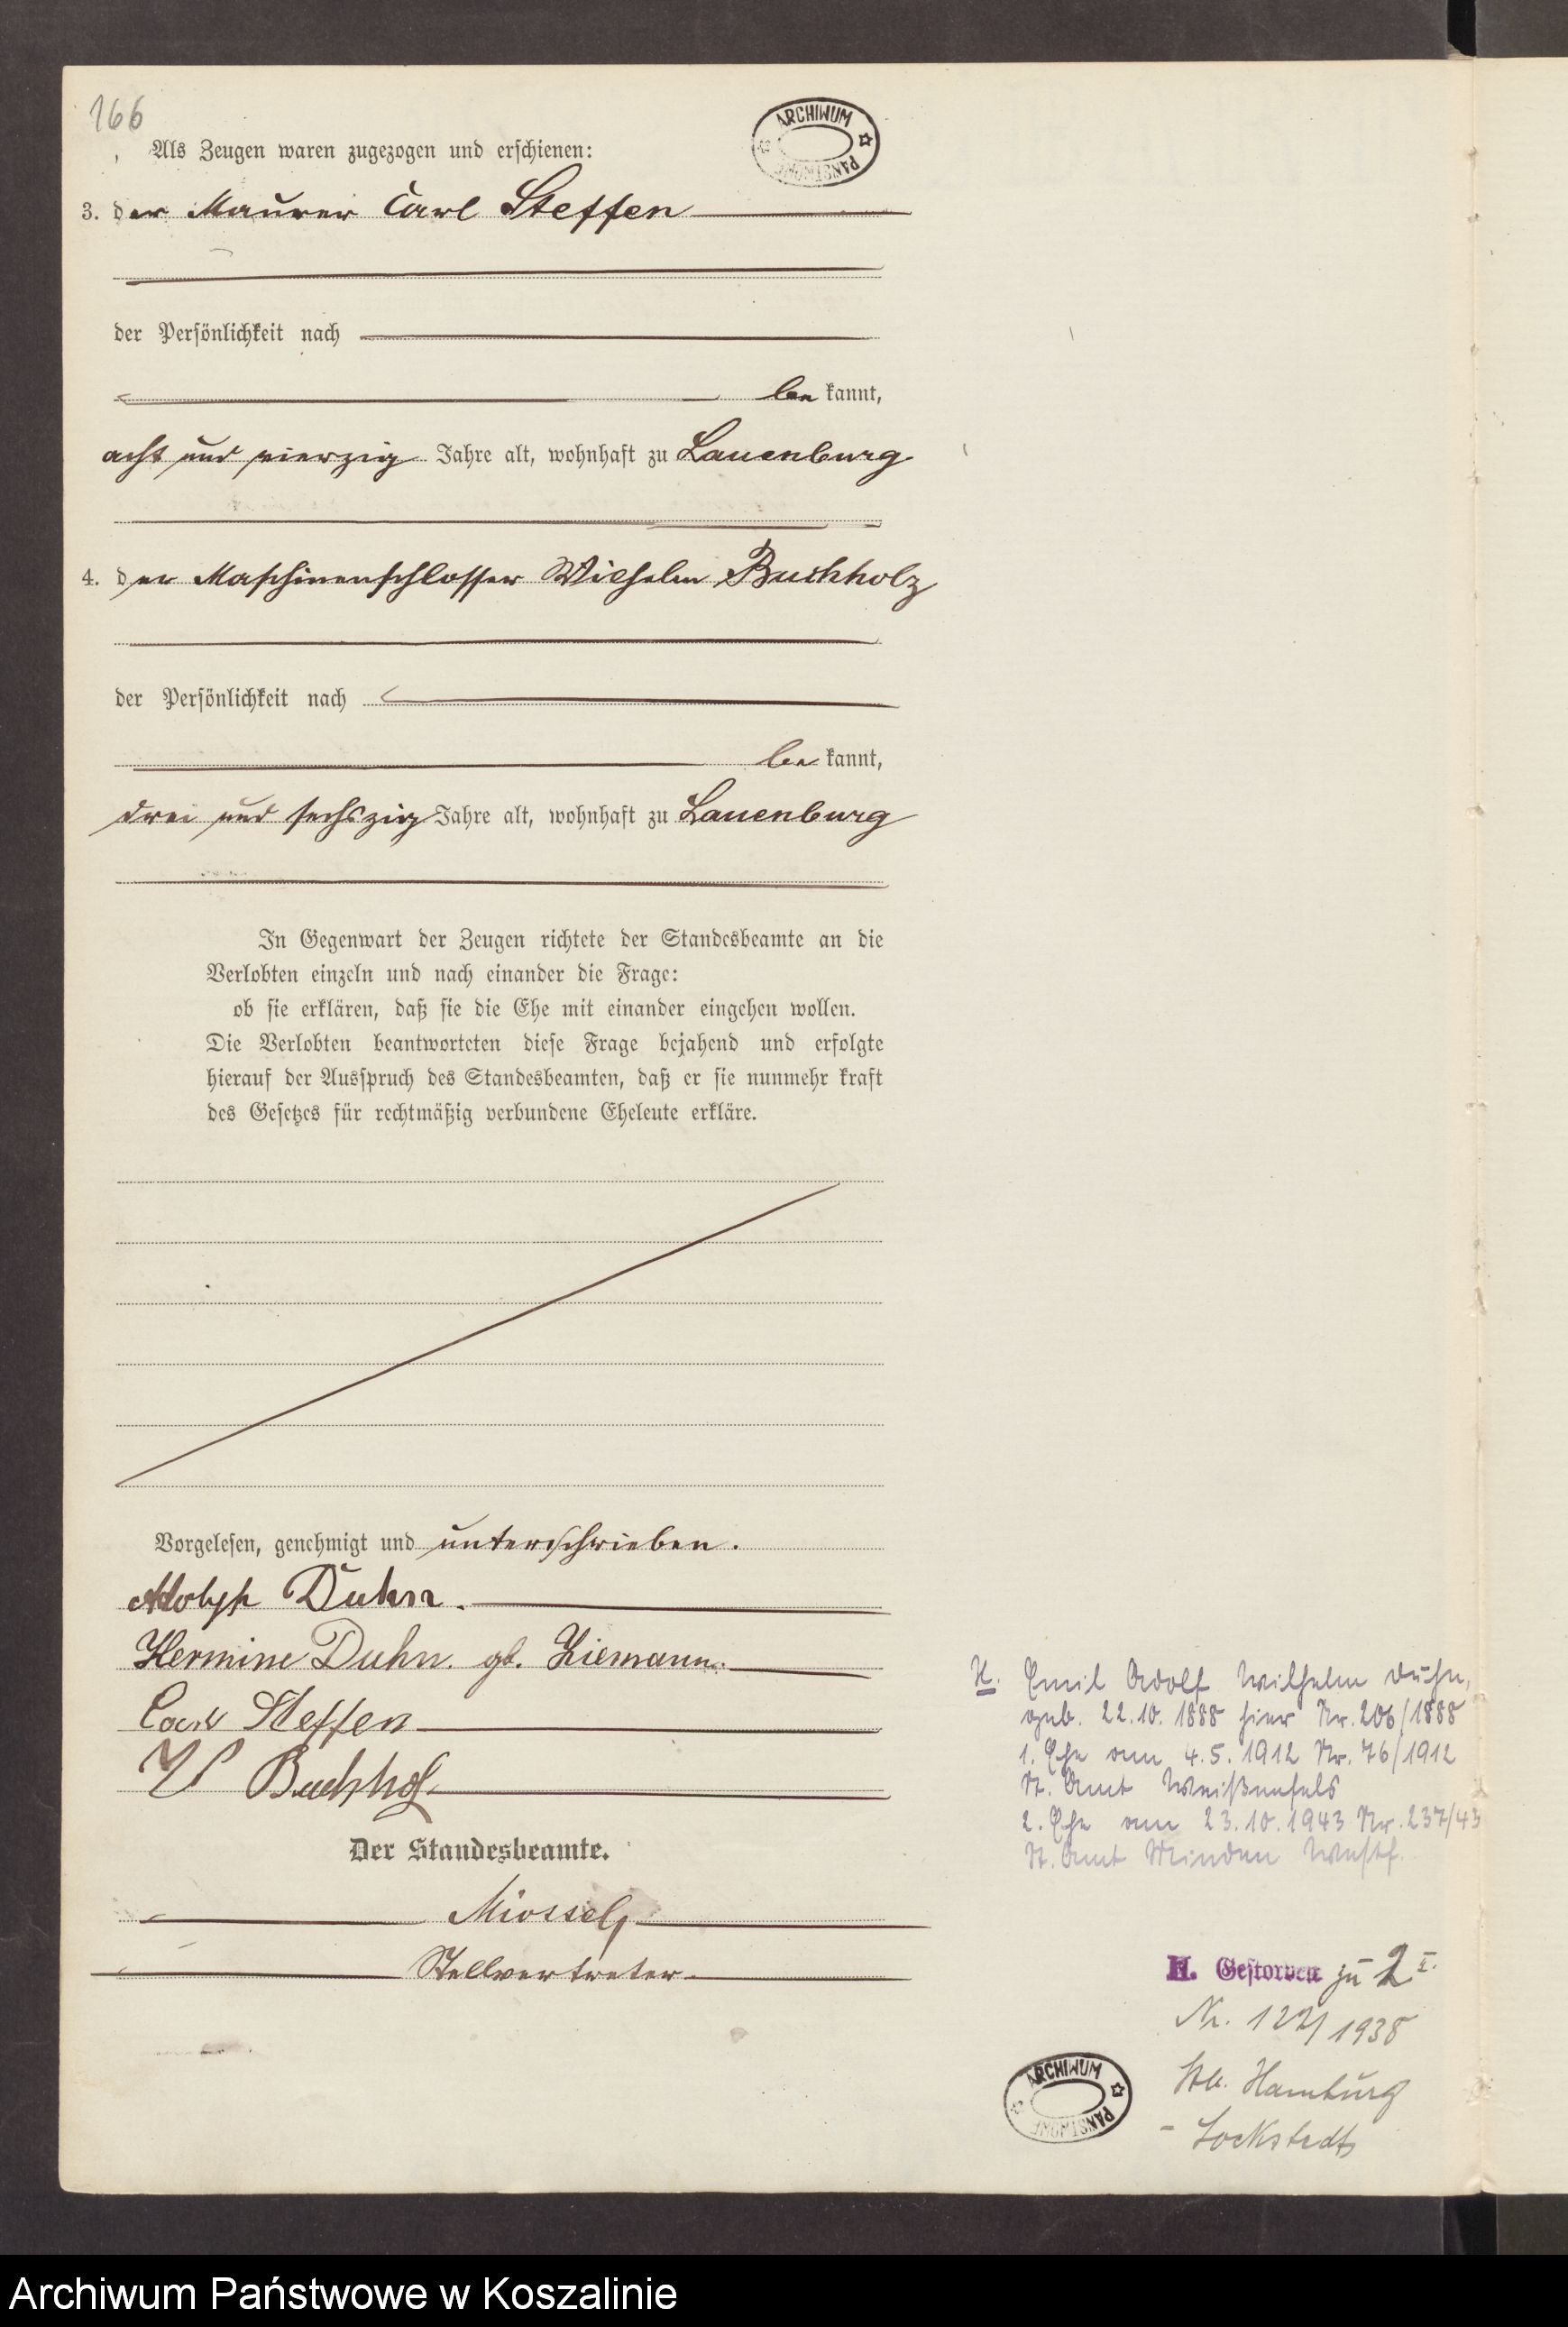 166
Als Zeugen waren zugezogen und erschienen:
3. der Maurer Carl Steffen
der Persönlichkeit nach
be kannt,
acht und vierzig Jahre alt, wohnhaft zu Lauenburg
4. der Maschinenschlosser Wilhelm Buchholz
der Persönlichkeit nach
be kannt,
drei und sechszig Jahre alt, wohnhaft zu Lauenburg
In Gegenwart der Zeugen richtete der Standesbeamte an die
Verlobten einzeln und nach einander die Frage:
ob sie erklären, daß sie die Ehe mit einander eingehen wollen.
Die Verlobten beantworteten diese Frage bejahend und erfolgte
hierauf der Ausspruch des Standesbeamten, daß er sie nunmehr kraft
des Gesetzes für rechtmäßig verbundene Eheleute erkläre.
Vorgelesen, genehmigt und unterschrieben.
Adolph Duhn.
Hermine Duhn. gb. Ziemann.
Carl Steffen
W Buchholz
Der Standesbeamte.
Stellvertreter
H. Emil Adolf Wilhelm Duhn,
geb. 22.10.1888 hier Nr. 206/1888
1. Ehe am 4.5.1912 Nr. 76/1912
St. Amt Weißenfels
2. Ehe am 23.10.1943 Nr. 237/43
St. Amt Minden Westf.
H. Gestorben zu 2
Nr. 1938
Hamburg
- Lockstedt
ARCHIWUM PAŃSTWOWE
ARCHIWUM PAŃSTWOWE
Archiwum Państwowe w Koszalinie